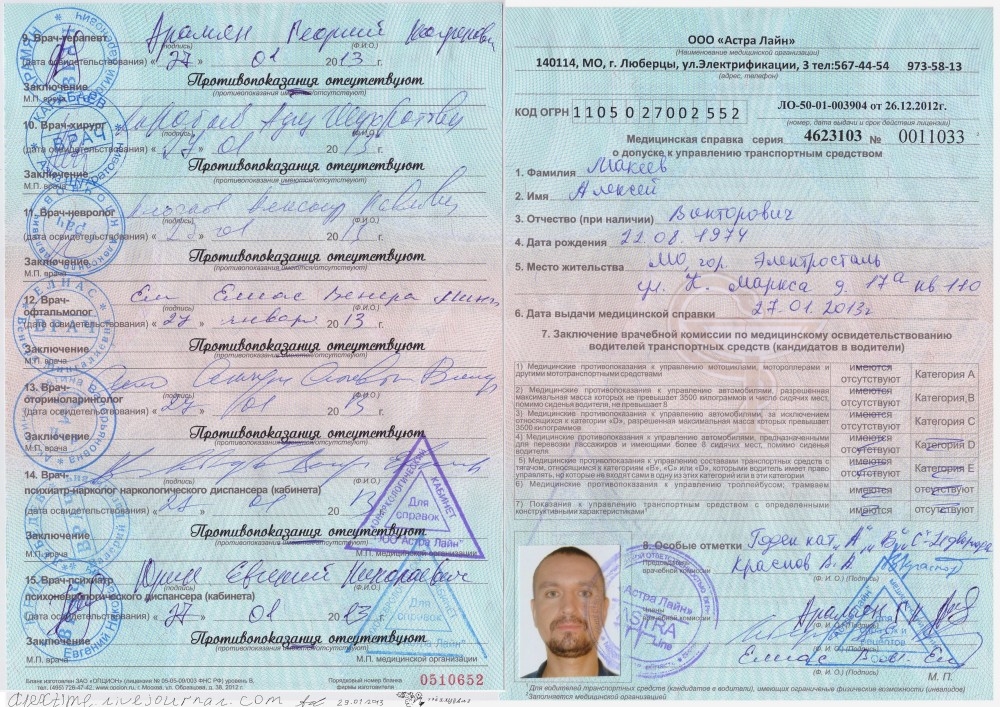 9. Врач-терапевт Арамян Георгий
(подпись) (Ф.И.О.)
(дата освидетельствования) « 27 » 01 2013 г.
Заключение Противопоказания отсутствуют
М.П. врача (противопоказания имеются/отсутствуют)
10. Врач-хирург Карабаев Азиз Шухратович
(подпись) (Ф.И.О.)
(дата освидетельствования) « 27 » 01 2013 г.
Заключение Противопоказания отсутствуют
М.П. врача (противопоказания имеются/отсутствуют)
11. Врач-невролог
(подпись) (Ф.И.О.)
(дата освидетельствования) « 27 » 01 2013 г.
Заключение Противопоказания отсутствуют
М.П. врача (противопоказания имеются/отсутствуют)
12. Врач-офтальмолог Елнас Венера
(подпись) (Ф.И.О.)
(дата освидетельствования) « 27 » января 2013 г.
Заключение Противопоказания отсутствуют
М.П. врача (противопоказания имеются/отсутствуют)
13. Врач-
оториноларинголог
(подпись) (Ф.И.О.)
(дата освидетельствования) « 27 » 01 2013 г.
Заключение Противопоказания отсутствуют
М.П. врача (противопоказания имеются/отсутствуют)
14. Врач-
(подпись) (Ф.И.О.)
психиатр-нарколог наркологического диспансера (кабинета)
(дата освидетельствования) « 27 » 01 2013 г.
Заключение Противопоказания отсутствуют
М.П. врача (противопоказания имеются/отсутствуют) М.П. медицинской организации
НАРКОЛОГИЧЕСКИЙ КАБИНЕТ
Для справок
ООО "Астра Лайн"
15. Врач-психиатр Юрин Евгений Николаевич
(подпись) (Ф.И.О.)
психоневрологического диспансера (кабинета)
(дата освидетельствования) « 27 » 01 2013 г.
Для справок
Заключение Противопоказания отсутствуют
М.П. врача (противопоказания имеются/отсутствуют) М.П. медицинской организации
Бланк изготовлен ЗАО «ОПЦИОН»
Порядковый номер бланка
0510652
livejournal.com 29.01.2013
ООО «Астра Лайн»
(Наименование медицинской организации)
140114, МО, г. Люберцы, ул.Электрификации, 3 тел:567-44-54 973-58-13
(адрес, телефон)
КОД ОГРН 1105027002552 ЛО-50-01-003904 от 26.12.2012г.
(номер, дата выдачи и срок действия лицензии)
Медицинская справка серия 4623103 № 0011033
о допуске к управлению транспортным средством
1. Фамилия Макеев
2. Имя Алексей
3. Отчество (при наличии) Викторович
4. Дата рождения 22.08.1974
5. Место жительства МО, гор. Электросталь
ул. К. Маркса д. 17а кв 110
6. Дата выдачи медицинской справки 27.01.2013г
7. Заключение врачебной комиссии по медицинскому освидетельствованию
водителей транспортных средств (кандидатов в водители)
1) Медицинские противопоказания к управлению мотоциклами, мотороллерами и другими мототранспортными средствами имеются отсутствуют Категория A
2) Медицинские противопоказания к управлению автомобилями, разрешенная максимальная масса которых не превышает 3500 килограммов и число сидячих мест, помимо сиденья водителя, не превышает 8 имеются отсутствуют Категория B
3) Медицинские противопоказания к управлению автомобилями, за исключением относящихся к категории «D», разрешенная максимальная масса которых превышает 3500 килограммов имеются отсутствуют Категория C
4) Медицинские противопоказания к управлению автомобилями, предназначенными для перевозки пассажиров и имеющими более 8 сидячих мест, помимо сиденья водителя имеются отсутствуют Категория D
5) Медицинские противопоказания к управлению составами транспортных средств с тягачом, относящимся к категориям «B», «C» или «D», которыми водитель имеет право управлять, но которые не входят сами в одну из этих категорий или в эти категории имеются отсутствуют Категория E
6) Медицинские противопоказания к управлению троллейбусом; трамваем имеются отсутствуют имеются отсутствуют
7) Показания к управлению транспортным средством с определенными конструктивными характеристиками*
8. Особые отметки Годен кат. "А" "В" "С"
Председатель врачебной комиссии Краснов В.А
(Ф. И. О.) (Подпись)
Члены врачебной комиссии
«Астра Лайн»
(Ф. И. О.) (Подпись)
(Ф. И. О.) (Подпись)
М. П.
*Для водителей транспортных средств (кандидатов в водители), имеющих ограниченные физические возможности (инвалидов)